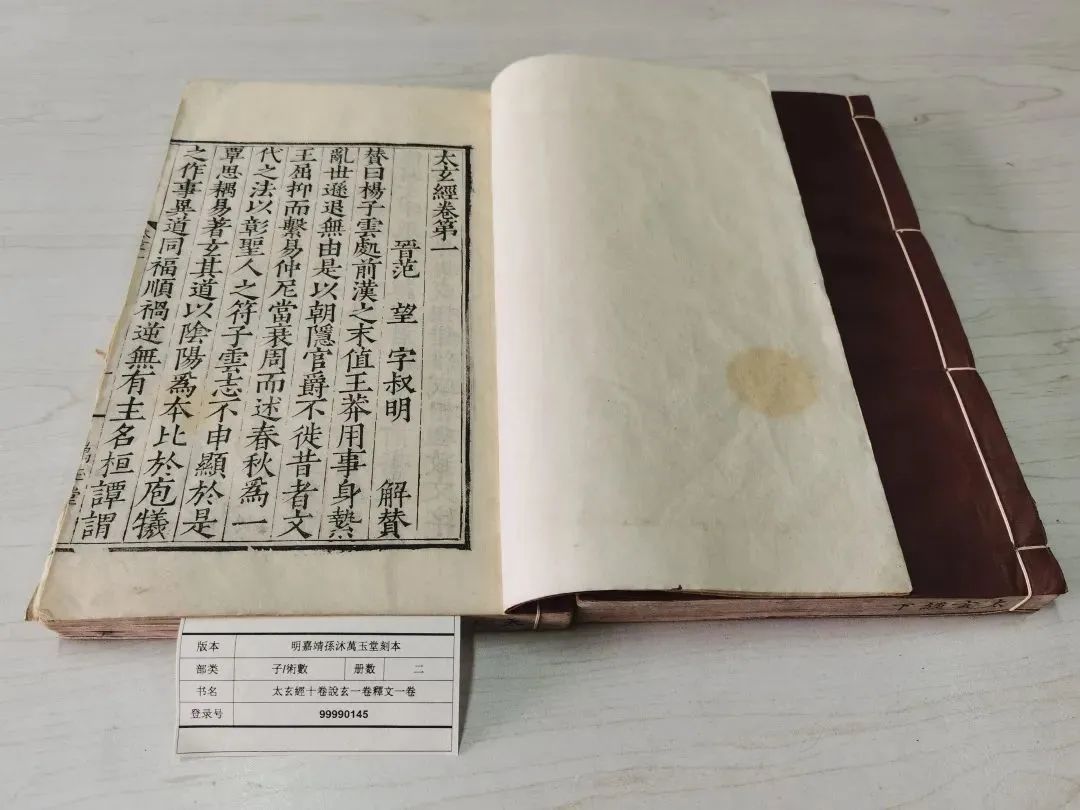 太玄經卷第一
晉范 望 字叔明 解賛
賛曰楊子雲處前漢之末值王莽用事身縶
亂世遜退無由是以朝隱官爵不徙昔者文
王屈抑而繫易仲尼當衰周而述春秋為一
代之法以彰聖人之符子雲志不申顯於是
覃思耦易著玄其道以陰陽為本比於庖犧
之作事異道同福順禍逆無有主名桓譚謂
版本 明嘉靖孫沐萬玉堂刻本
部类 子/術數 册数 二
书名 太玄經十卷說玄一卷釋文一卷
登录号 99990145